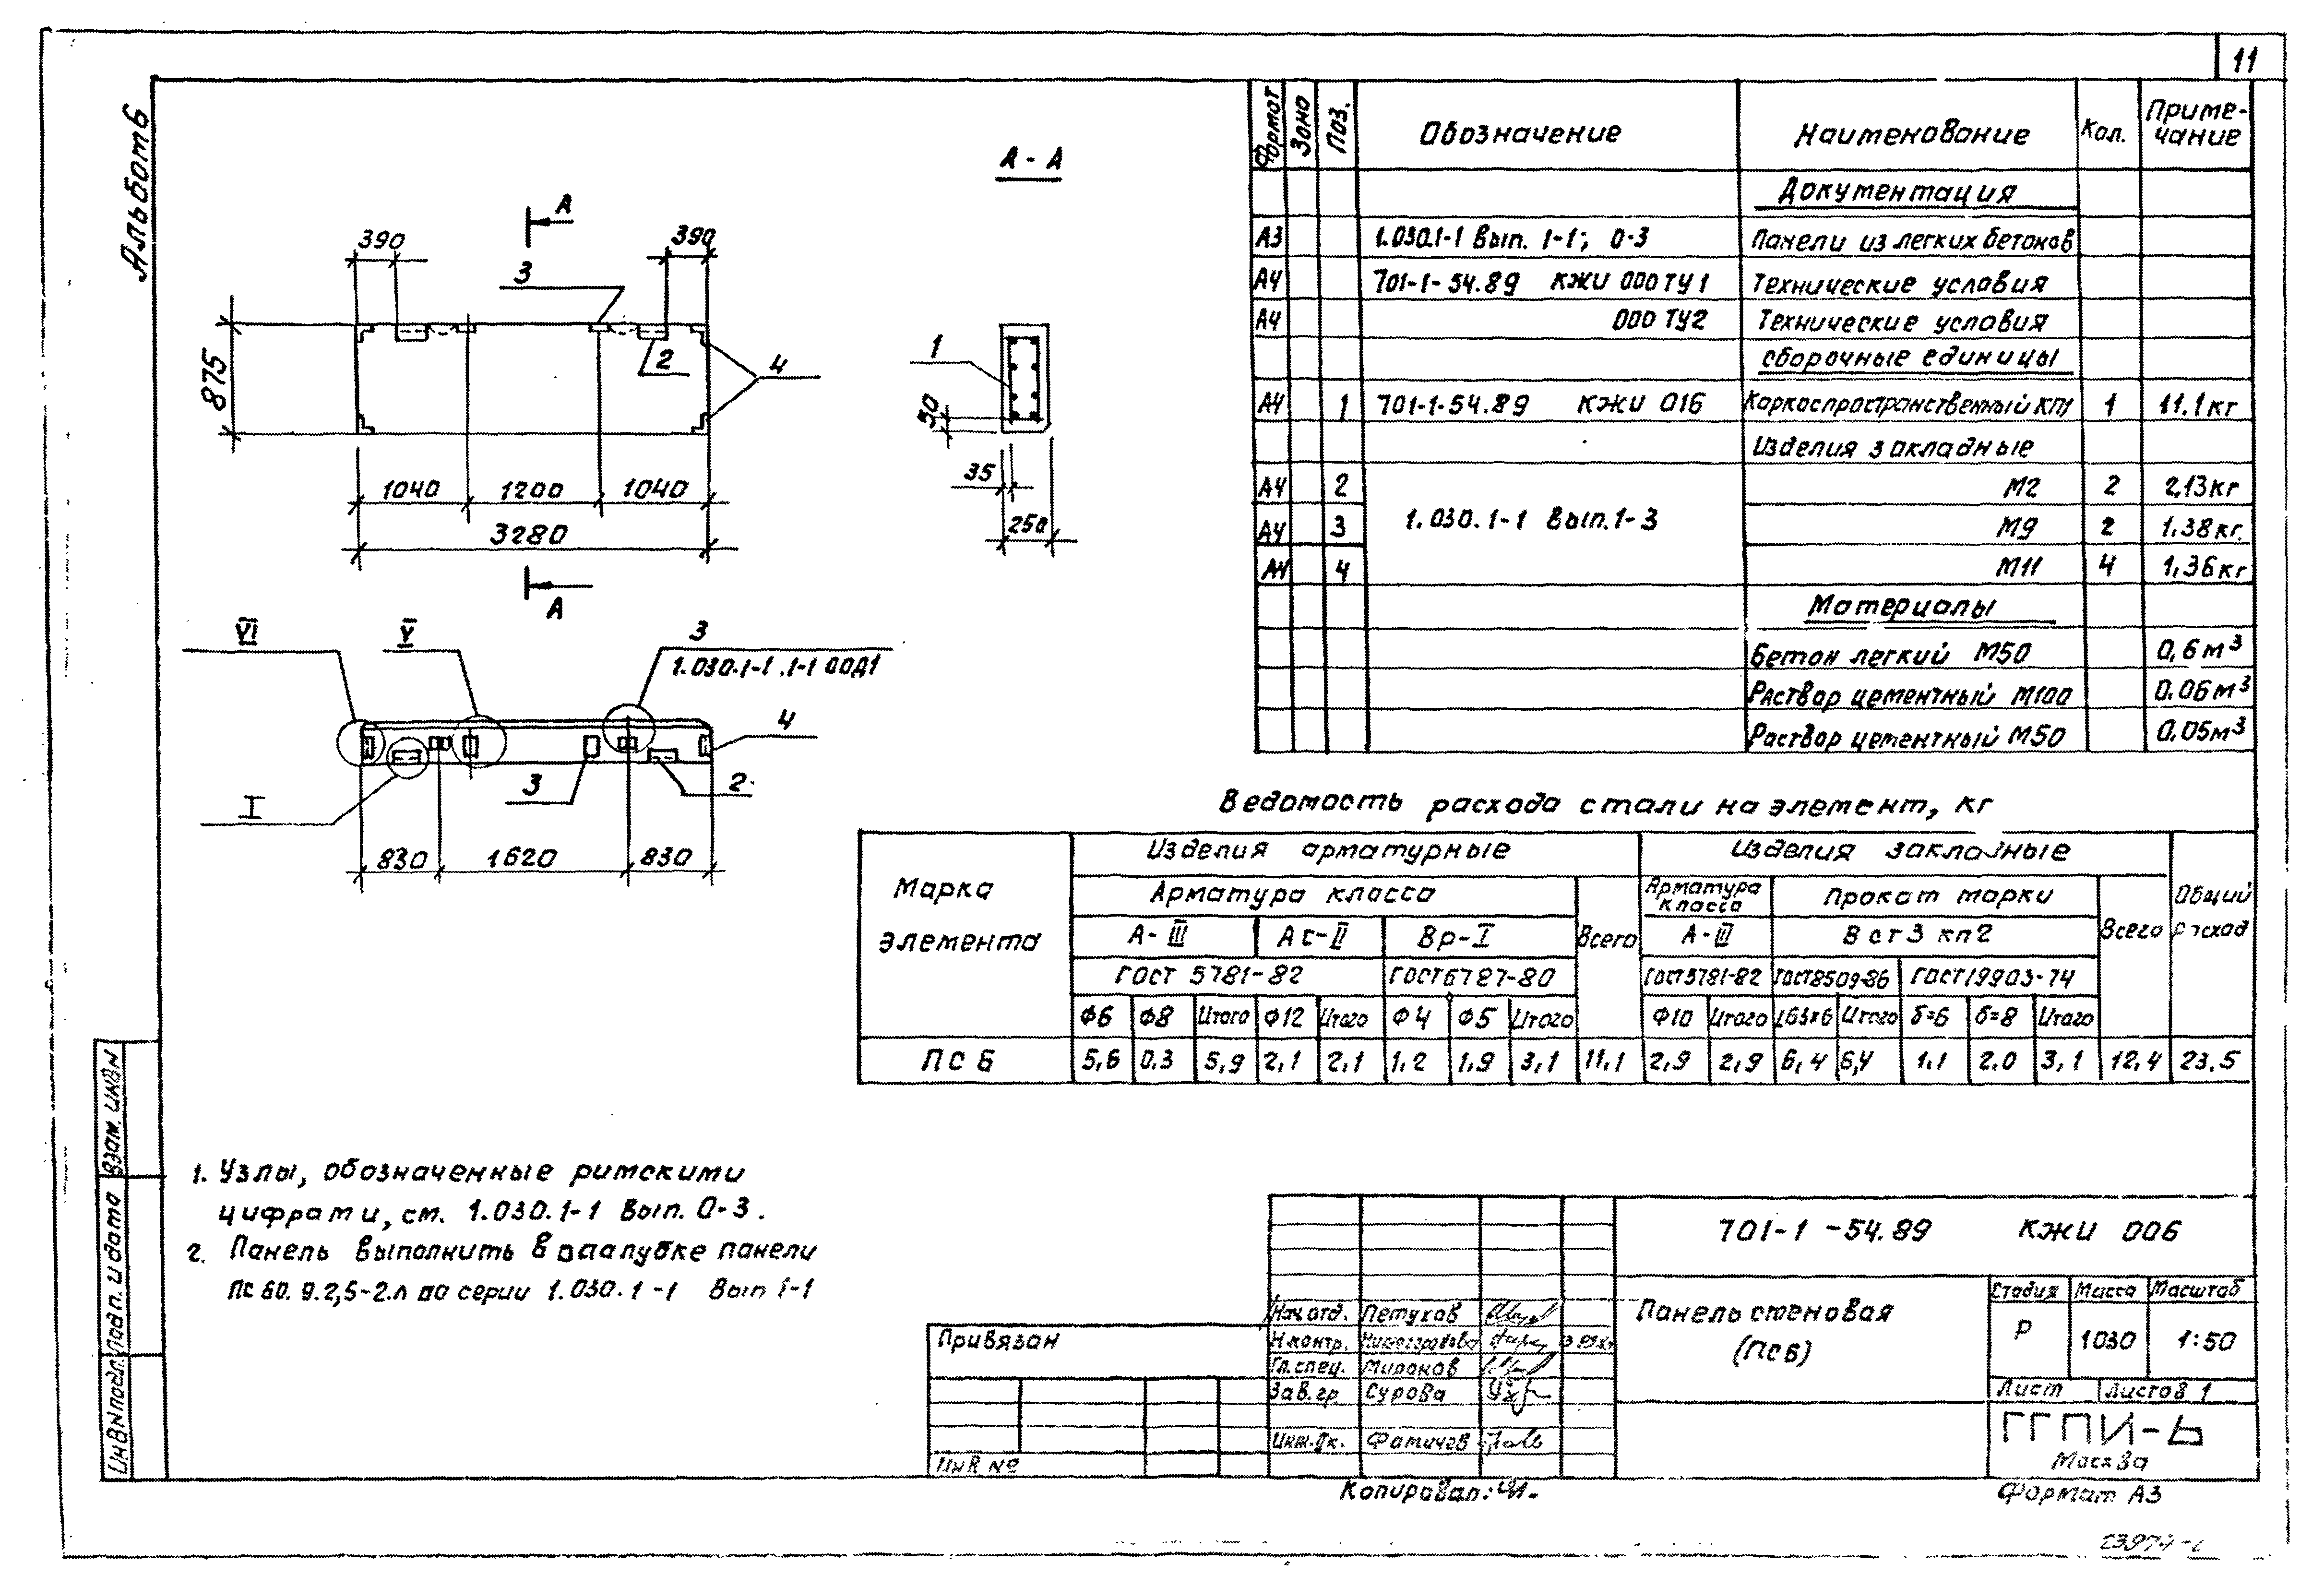 11
Альбом 6
А - А
А
390
390
3
875
2
4
1040 1200 1040
3280
А
1
50
35
250
VI
V
3
1.030.1-1 .1-1 00Д1
4
I
3
2
830 1620 830
Формат Зона Поз. Обозначение Наименование Кол. Приме-
чание
Документация
А3 1.030.1-1 Вып. 1-1; 0-3 Панели из легких бетонов
А4 701-1-54.89 КЖИ 000 ТУ1 Технические условия
А4 000 ТУ2 Технические условия
Сборочные единицы
А4 1 701-1-54.89 КЖИ 016 Каркас пространственный КП1 1 11.1кг
Изделия закладные
А4 2 М2 2 2,13кг
1.030.1-1 Вып.1-3
А4 3 М9 2 1.38кг.
А4 4 М11 4 1,36кг
Материалы
Бетон легкий М50 0,6м³
Раствор цементный М100 0.06м³
Раствор цементный М50 0.05м³
Ведомость расхода стали на элемент, кг
Марка
элемента
Изделия арматурные
Изделия закладные
Общий
расход
Арматура класса
Всего
Арматура
класса
Прокат марки
Всего
А-III Ас-II Вр-I А-III Вст3 кп2
ГОСТ 5781-82 ГОСТ 6727-80 ГОСТ5781-82 ГОСТ8509-86 ГОСТ19903-74
Ф6 Ф8 Итого Ф12 Итого Ф4 Ф5 Итого Ф10 Итого L63×6 Итого δ=6 δ=8 Итого
ПС 6 5,6 0.3 5,9 2,1 2,1 1,2 1,9 3,1 11,1 2,9 2,9 6,4 6,4 1.1 2.0 3,1 12,4 23.5
1. Узлы, обозначенные римскими
цифрами, см. 1.030.1-1 Вып. 0-3.
2. Панель выполнить в опалубке панели
ПС 60.9.2,5-2.Л по серии 1.030.1-1 Вып 1-1
Взам. инв№
Подп. и дата
Инв№подл.
Привязан
Инв №
Нач.отд. Петухов
Н.контр.
Гл.спец. Миронов
Зав.гр. Сурова
Инж.IIк. Фатичев
701-1-54.89 КЖИ 006
Панель стеновая
(ПС6)
Стадия Масса Масштаб
Р 1030 1:50
Лист Листов 1
ГГПИ-6
Москва
Копировал:
Формат А3